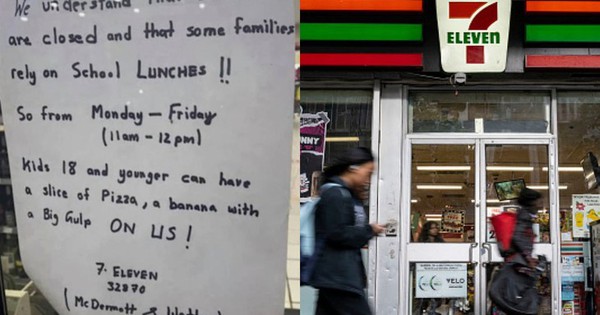 We understand that
are closed and that some families
rely on School LUNCHES !!
So from Monday – Friday
(11am - 12pm)
Kids 18 and younger can have
a slice of Pizza, a banana with
a Big Gulp ON US!
7. ELEVEN
32870
(McDermott &
7
ELEVEN
NNY
VELO